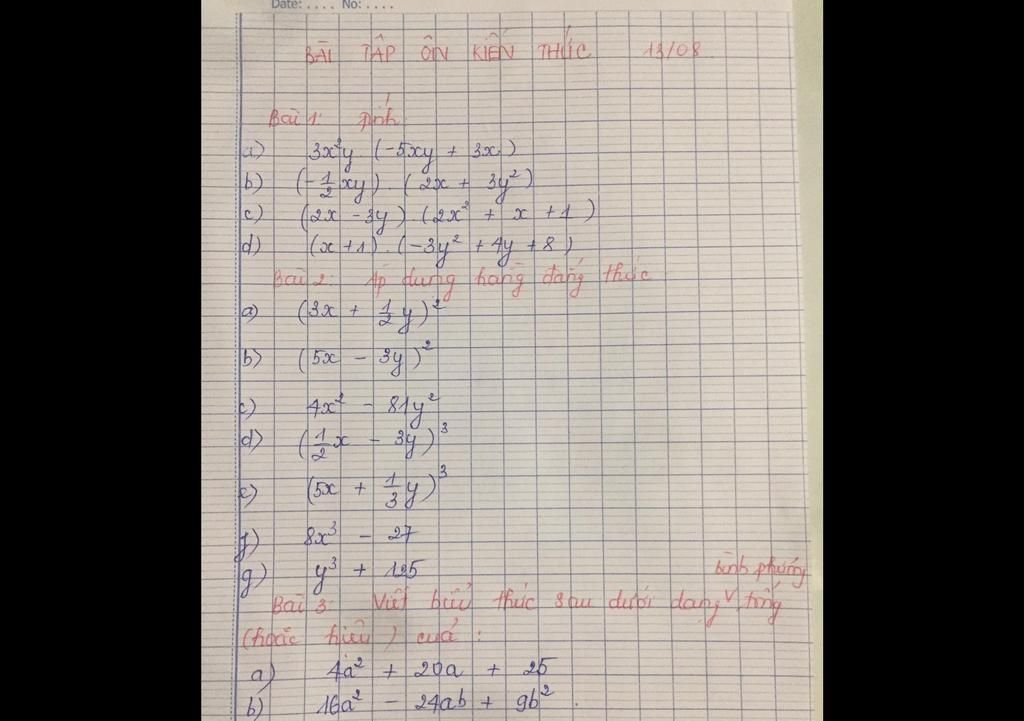 Date: .... No: ....
BÀI TẬP ÔN KIẾN THỨC 13/08
Bài 1: Tính
a) 3x²y (-5xy + 3x)
b) (-1/2 xy) . (2x + 3y²)
c) (2x - 3y) . (2x² + x + 1)
d) (x + 1) . (-3y² + 4y + 8)
Bài 2: Áp dụng hằng đẳng thức
a) (3x + 1/2 y)²
b) (5x - 3y)²
c) 4x² - 81y²
d) (1/2 x - 3y)³
e) (5x + 1/3 y)³
f) 8x³ - 27
g) y³ + 125
bình phương
Bài 3: Viết biểu thức sau dưới dạng v tổng
(hoặc hiệu) của :
a) 4a² + 20a + 25
b) 16a² - 24ab + 9b² .